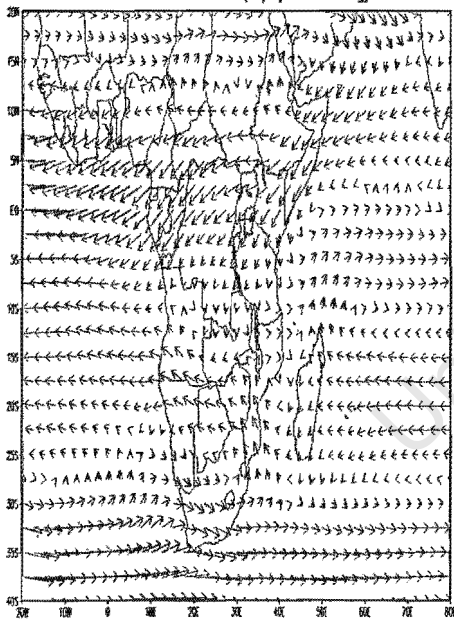 20N
15N
10N
5N
EQ
5S
10S
15S
20S
25S
30S
35S
40S
20W 10W 0 10E 20E 30E 40E 50E 60E 70E 80E